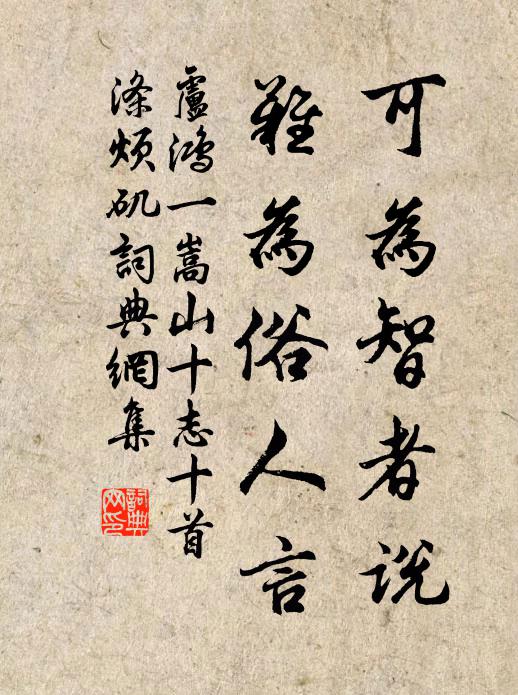 可為智者說
難為俗人言
盧鴻一嵩山十志十首
滌煩矶詞典網集
詞典网印